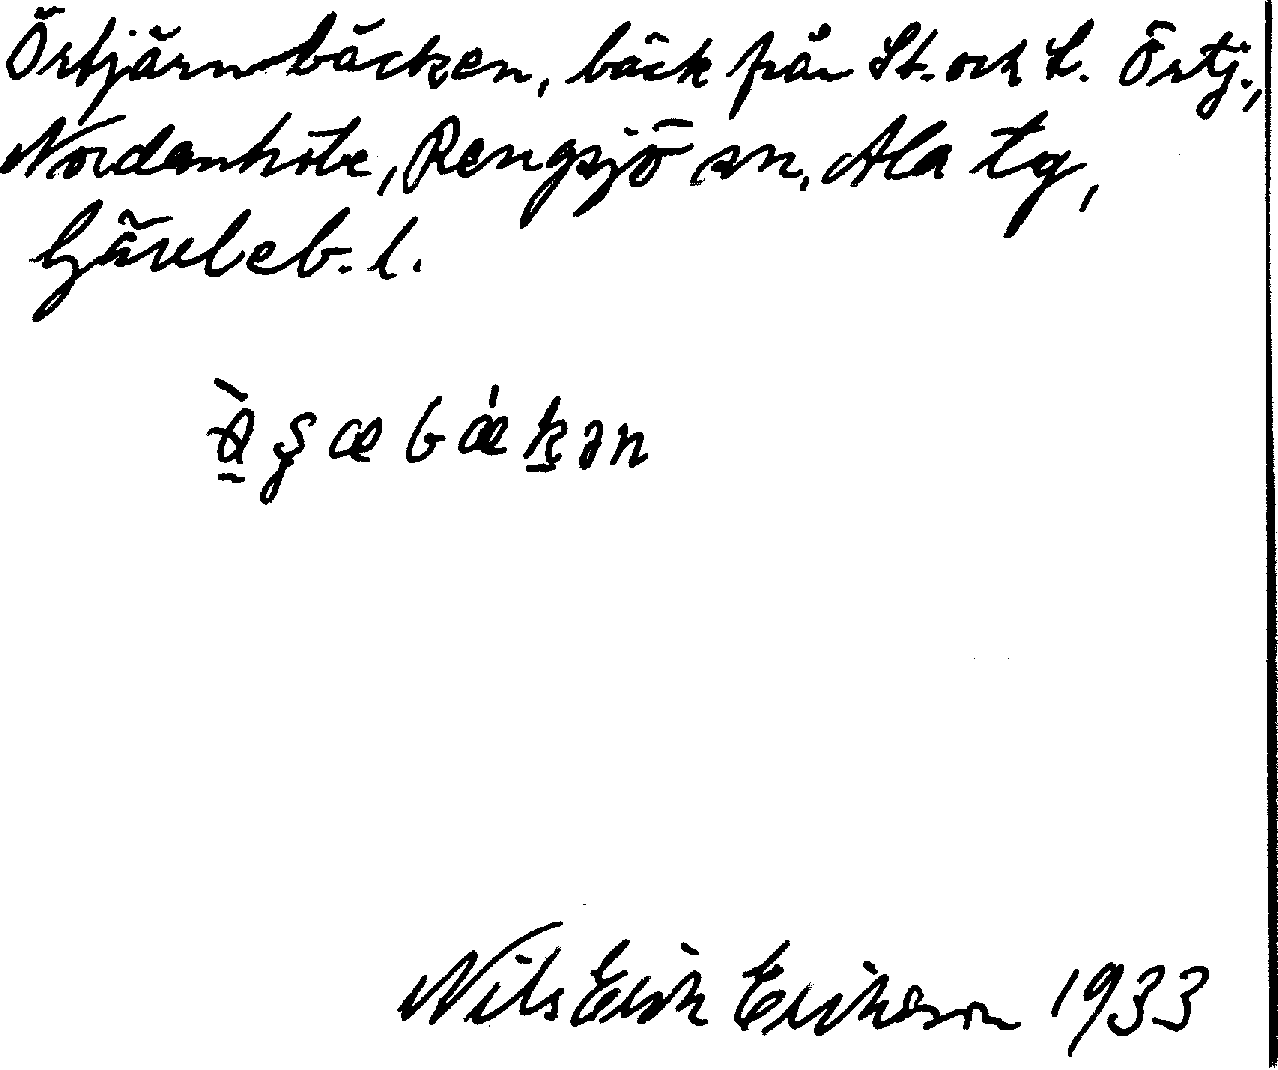 Örtjärnbäcken, bäck från St. och L. Örtj.,
Nordanhöbe, Rengsjö sn, Ala tg,
Gävleb. l.
bǽꞣən
Nils Erik Erikson 1933